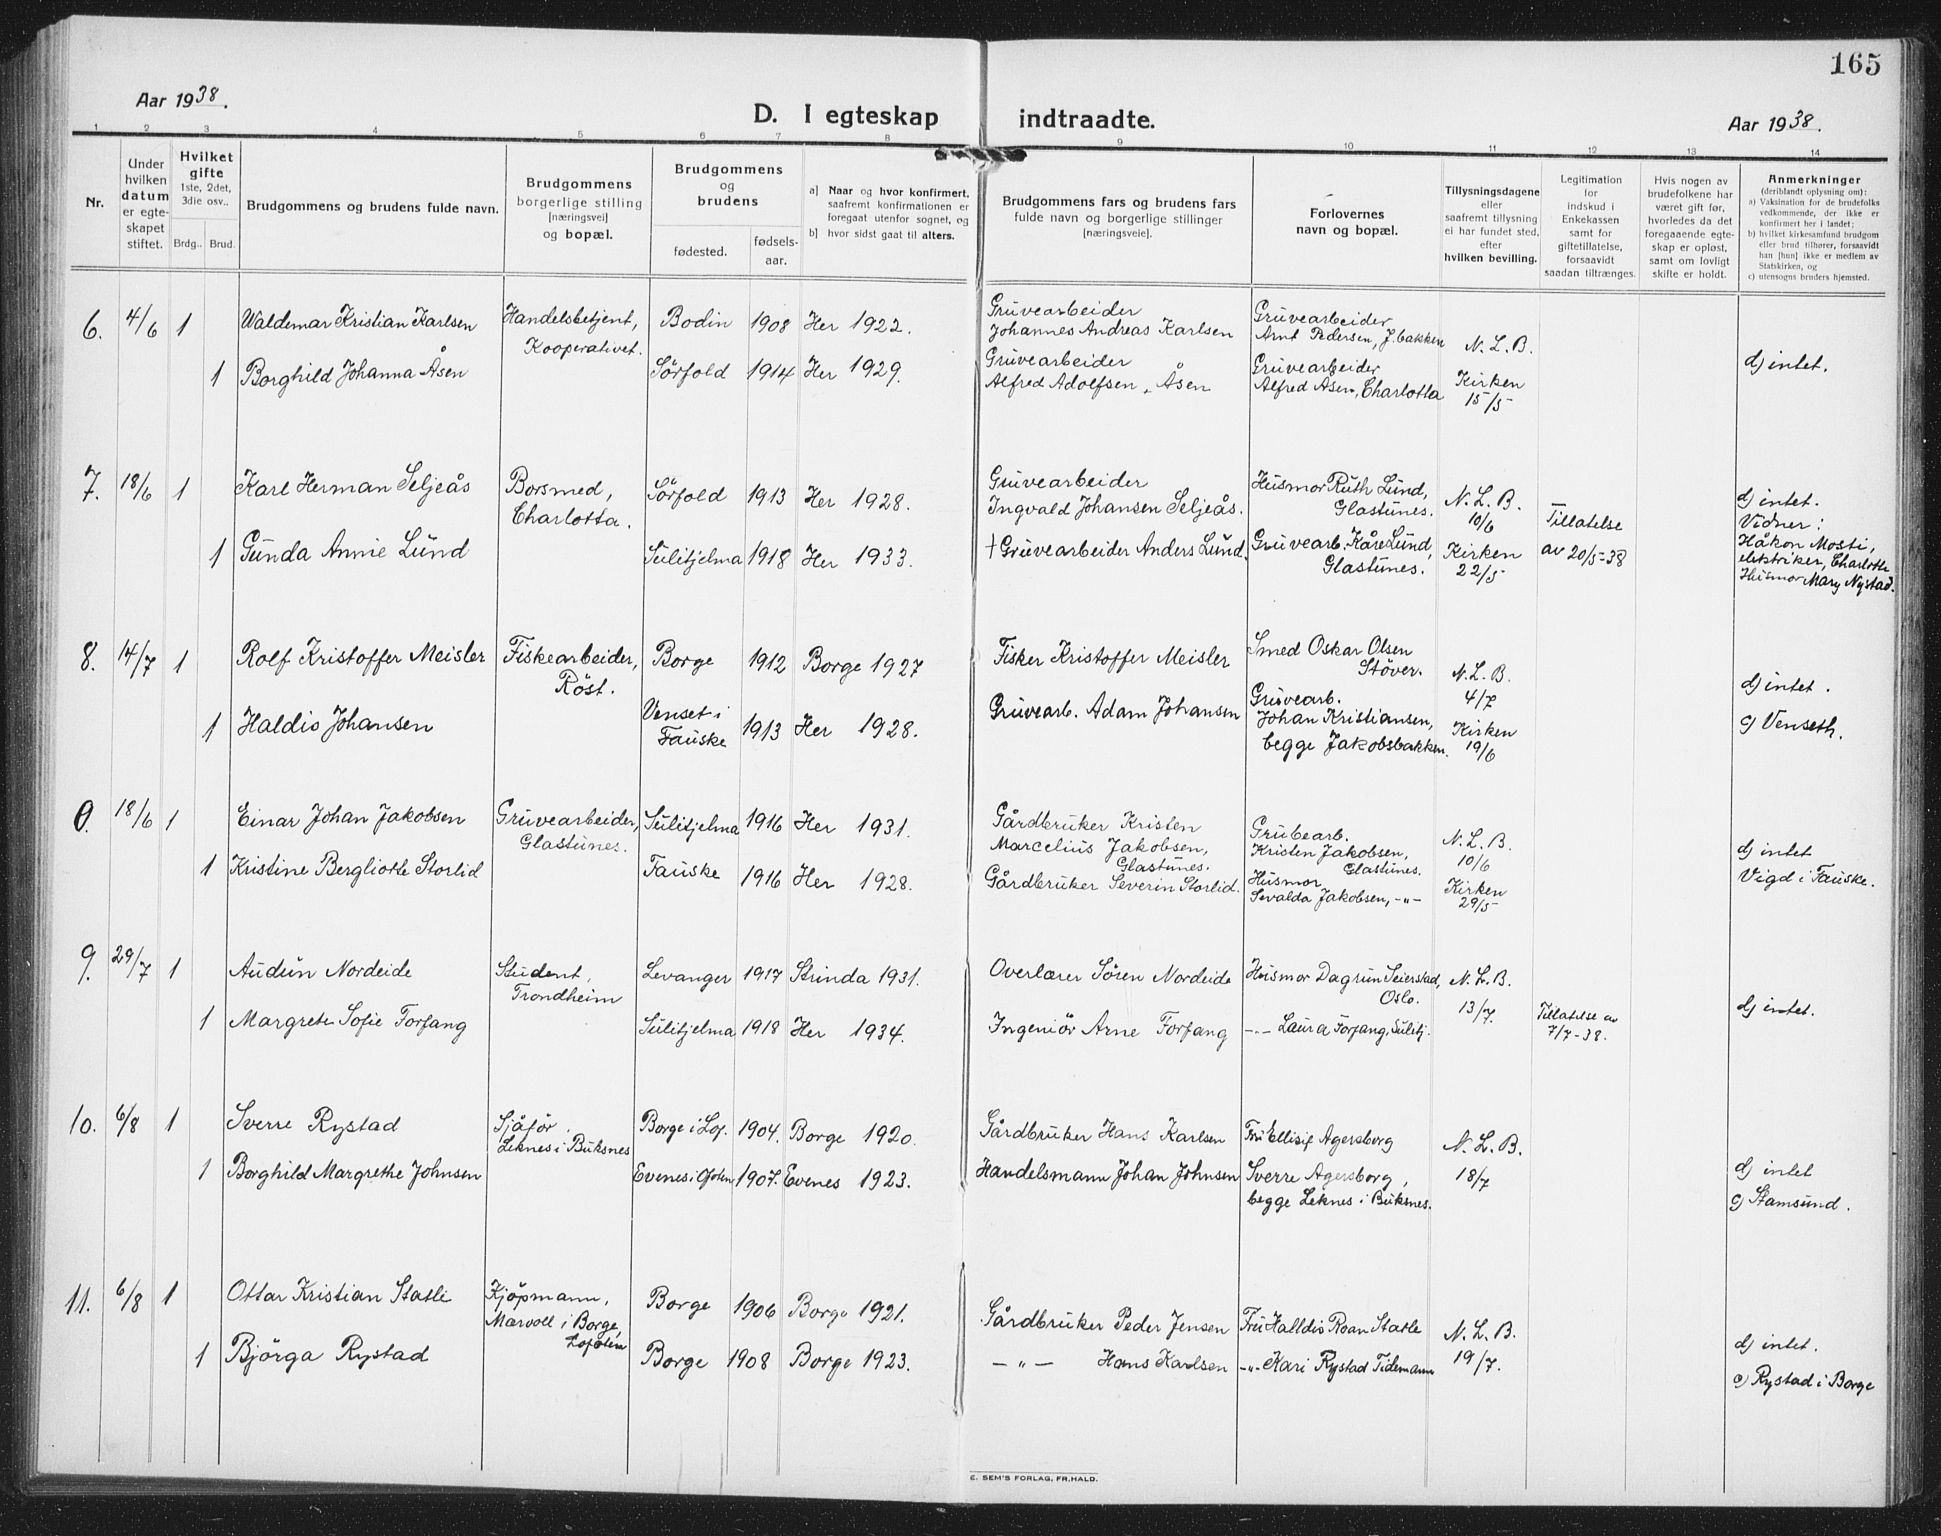 165
Aar 1938.
D. I egteskap indtraadte.
Aar 1938.
1 2 3 4 5 6 7 8 9 10 11 12 13 14
Nr.
Under hvilken datum er egte-skapet stiftet.
Hvilket gifte
1ste, 2det, 3die osv..
Brdg.. Brud.
Brudgommens og brudens fulde navn.
Brudgommens borgerlige stilling (næringsvei) og bopæl.
Brudgommens og brudens
fødested.
fødsels-aar.
a) Naar og hvor konfirmert, saafremt konfirmationen er foregaat utenfor sognet, og
b) hvor sidst gaat til alters.
Brudgommens fars og brudens fars fulde navn og borgerlige stillinger (næringsveie).
Forlovernes navn og bopæl.
Tillysningsdagene eller saafremt tillysning ei har fundet sted, efter hvilken bevilling.
Legitimation for indskud i Enkekassen samt for giftetillatelse, forsaavidt saadan tiltrænges.
Hvis nogen av brudefolkene har været gift før, hvorledes da det foregaaende egte-skap er opløst, samt om lovligt skifte er holdt.
Anmerkninger
(deriblandt oplysning om):
a) Vaksination for de brudefolks vedkommende, der ikke er konfirmert her i landet;
b) hvilket kirkesamfund brudgom eller brud tilhører, forsaavidt han (hun) ikke er medlem av Statskirken, og
c) utensogns bruders hjemsted.
6. 4/6 1 Waldemar Kristian Karlsen
Handelsbetjent, Kooperativet.
Bodin 1908 Her 1922.
Gruvearbeider Johannes Andreas Karlsen
Gruvearbeider Arnt Pedersen, J.bakken
N. L. B.
1 Borghild Johanna Åsen
Sörfold 1914 Her 1929.
Gruvearbeider Alfred Adolfsen Åsen
Gruvearbeider Alfred Åsen, Charlotta
Kirken 15/5
d) intet.
7. 18/6 1 Karl Herman Seljeås
Borsmed, Charlotta.
Sörfold 1913 Her 1928.
Gruvearbeider Ingvald Johansen Seljeås.
Husmor Ruth Lund, Glastunes.
N. L. B. 10/6
1 Gunda Annie Lund
Sulitjelma 1918 Her 1933.
† Gruvearbeider Anders Lund.
Gruvearb. Kåre Lund, Glastunes.
Kirken 22/5
Tillatelse av 20/5-38
d) intet.
Vidner:
Håkon Mosti,
elektriker, Charlotte
Husmor Mary Nystad.
8. 14/7 1 Rolf Kristoffer Meisler
Fiskearbeider, Röst.
Borge 1912 Borge 1927
Fisker Kristoffer Meisler
Smed Oskar Olsen Stöver.
N. L. B. 4/7
1 Haldis Johansen
Venset i Fauske 1913 Her 1928.
Gruvearb. Adam Johansen
Gruvearb. Johan Kristiansen, begge Jakobsbakken.
Kirken 19/6
d) intet.
c) Venseth.
0. 18/6 1 Einar Johan Jakobsen
Gruvearbeider, Glastunes.
Sulitjelma 1916 Her 1931.
Gårdbruker Kristen Marcelius Jakobsen, Glastunes.
Grubearb. Kristen Jakobsen, Glastunes.
N. L. B. 10/6
1 Kristine Bergliotte Storlid
Fauske 1916 Her 1928.
Gårdbruker Severin Storlid.
Husmor Sevalda Jakobsen, -"-
Kirken 29/5
d) intet
Vigd i Fauske.
9. 29/7 1 Audun Nordeide
Student, Trondheim
Levanger 1917 Strinda 1931.
Overlærer Sören Nordeide
Husmor Dagrun Seierstad, Oslo.
N. L. B. 13/7.
1 Margrete Sofie Forfang
Sulitjelma 1918 Her 1934.
Ingeniör Arne Forfang
-"- Laura Forfang, Sulitj.
Tillatelse av 7/7-38.
d) intet.
10. 6/8 1 Sverre Rystad
Sjåför. Leknes i Buksnes
Borge i Lof. 1904. Borge 1920.
Gårdbruker Hans Karlsen
Fru Ellisif Agersborg
N. L. B. 18/7
1 Borghild Margrethe Johnsen
Evenes i Ofoten 1907. Evenes 1923.
Handelsmann Johan Johnsen
Sverre Agersborg, begge Leknes i Buksnes.
d) intet
c) Stamsund.
11. 6/8 1 Ottar Kristian Statle
Kjöpmann, Marvoll i Borge, Lofoten
Borge 1906 Borge 1921.
Gårdbruker Peder Jensen
Fru Halldis Roan Statle
N. L. B. 19/7.
1 Björga Rystad
Borge 1908 Borge 1923.
-"- Hans Karlsen
-"- Kari Rystad Tidemann
d) intet.
c) Rystad i Borge
E. SEM'S FORLAG, FR.HALD.